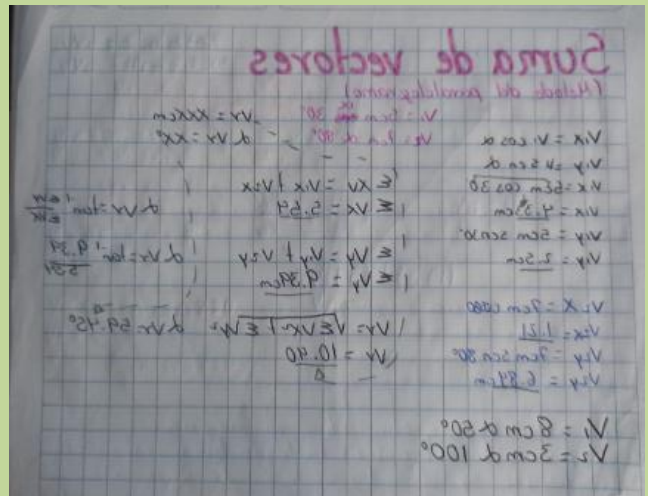 Suma de vectores
(Método del paralelogramo)
V₁ = 5cm 30° Vr = xxxcm
V₂ = 7cm α 80° α Vr = xx°
V₁x = V₁ cos α
V₁y = V sen α
V₁x = 5cm cos 30
V₁x = 4.33cm
V₁y = 5cm sen 30
V₁y = 2.5cm
V₂x = 7cm cos80
V₂x = 1.21
V₂y = 7cm sen 80°
V₂y = 6.89cm
Σ Vx = V₁x + V₂x
Σ Vx = 5.54
Σ Vy = V₁y + V₂y
Σ Vy = 9.39cm
Vr = √ΣVx² + ΣVy²
Vr = 10.90
α Vr = tan⁻¹ ΣVy/ΣVx
α Vr = tan⁻¹ 9.39/5.54
α Vr = 59.45°
V₁ = 8cm α 50°
V₂ = 3cm α 100°